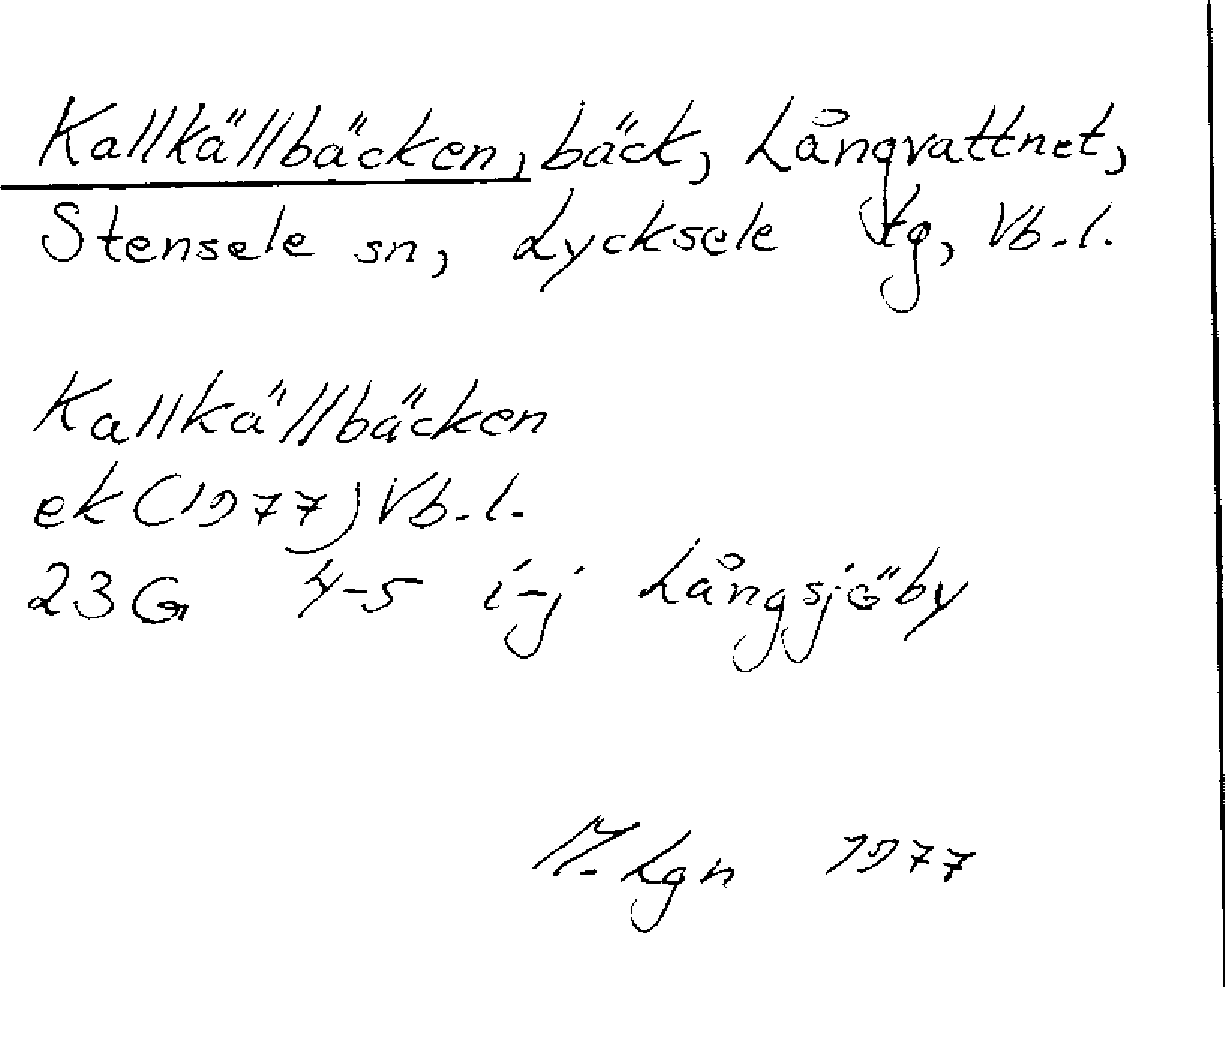 Kallkällbäcken, bäck, Långvattnet,
Stensele sn, Lycksele tg, Vb.l.
Kallkällbäcken
ek (1977) Vb.l.
23G 4-5 i-j Långsjöby
M. Lgn 1977